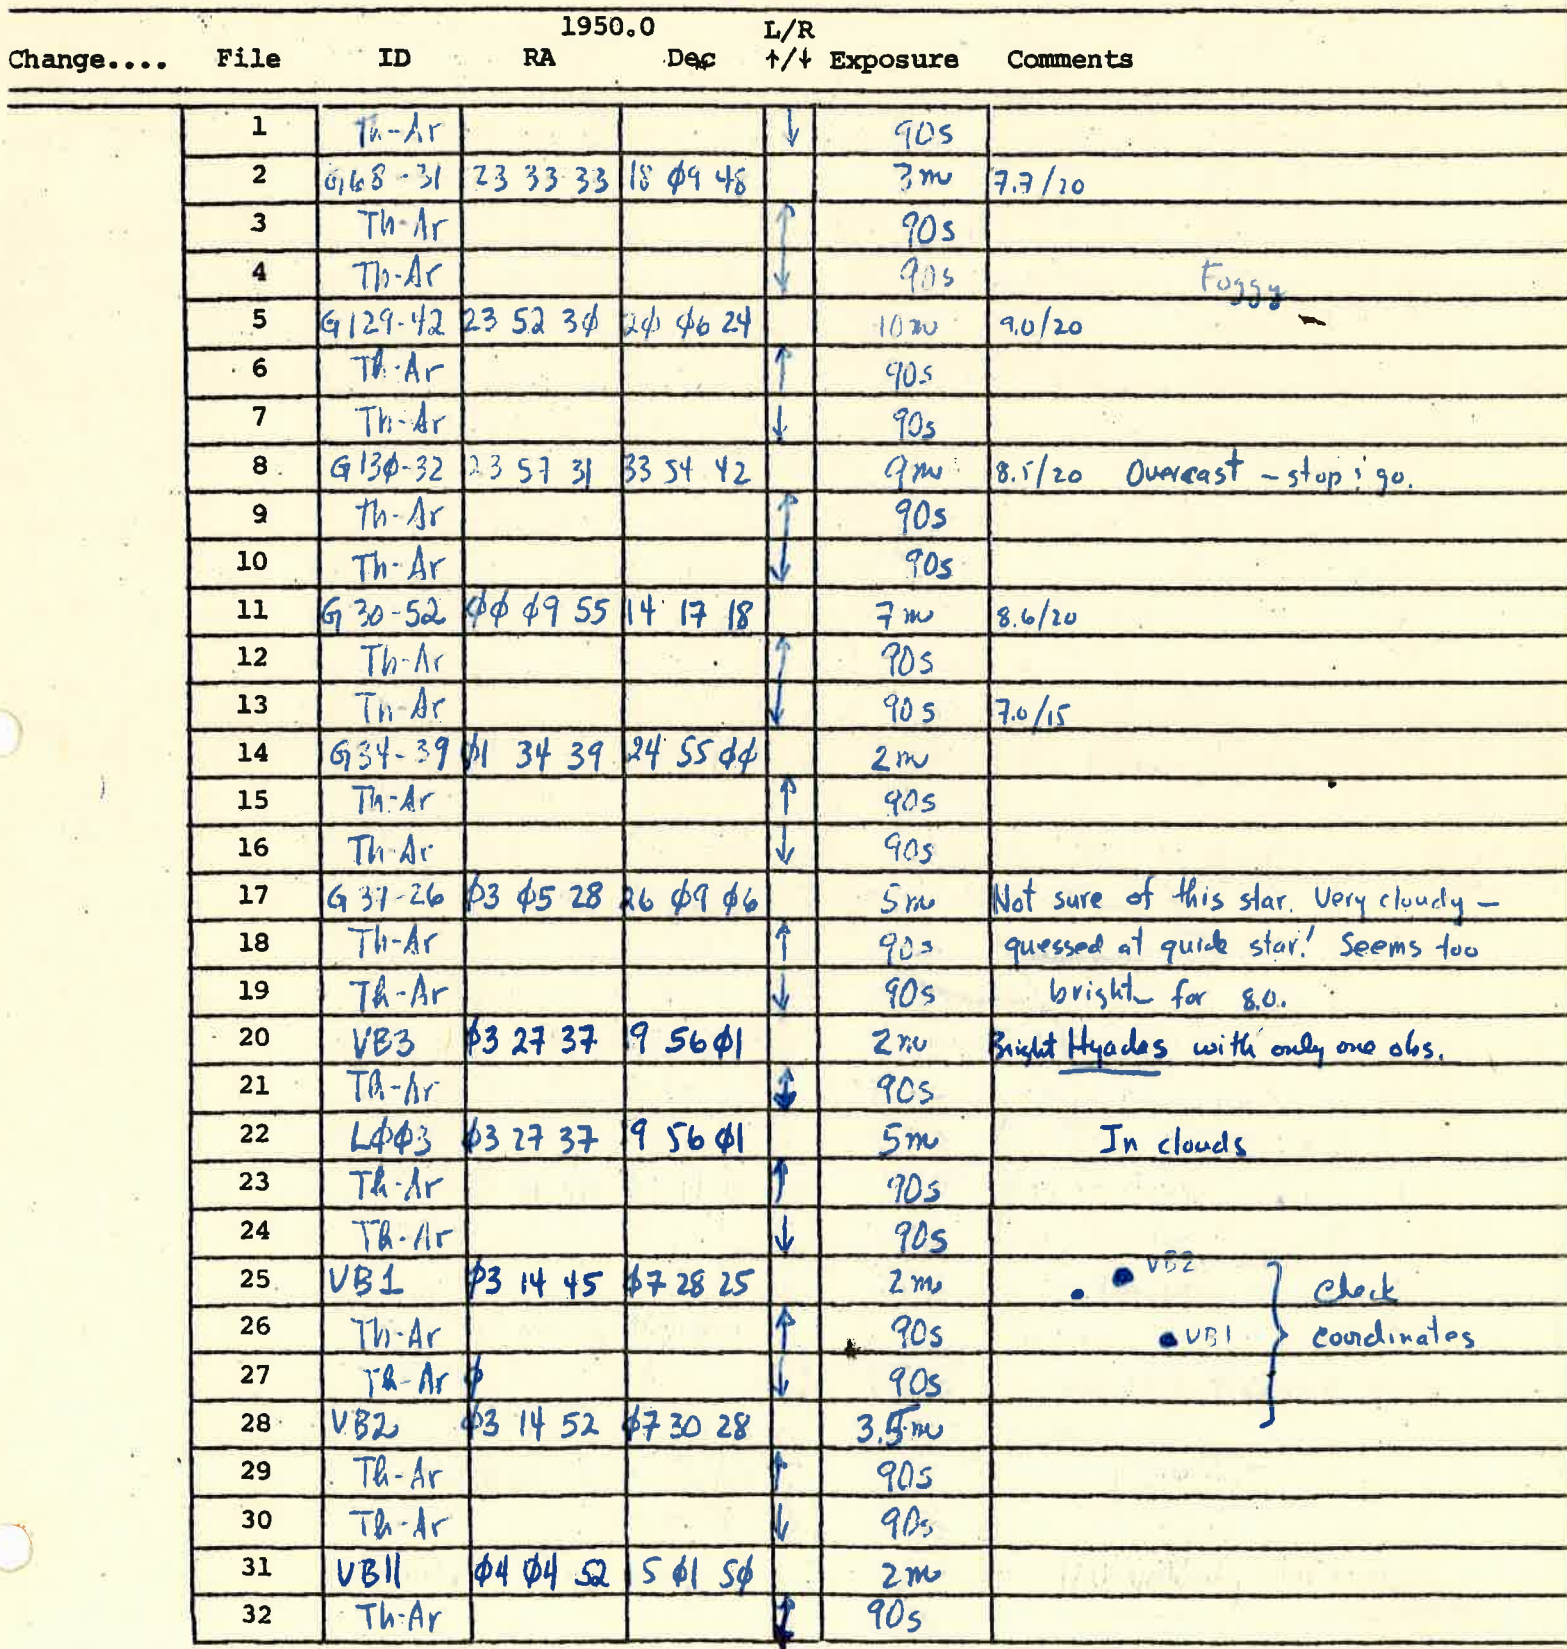 1950.0 L/R
Change.... File ID RA Dec ↑/↓ Exposure Comments
1 Th-Ar ↓ 90s
2 G68-31 23 33 33 18 φ9 48 3m 7.7/20
3 Th-Ar ↑ 90s
4 Th-Ar ↓ 90s Foggy
5 G129-42 23 52 3φ 2φ φ6 24 10m 9.0/20
6 Th-Ar ↑ 90s
7 Th-Ar ↓ 90s
8 G13φ-32 23 57 31 33 54 42 9m 8.5/20 Overcast - stop & go.
9 Th-Ar ↑ 90s
10 Th-Ar ↓ 90s
11 G30-52 φφ φ9 55 14 17 18 7m 8.6/20
12 Th-Ar ↑ 90s
13 Th-Ar ↓ 90s 7.0/15
14 G34-39 φ1 34 39 24 55 φφ 2m
15 Th-Ar ↑ 90s
16 Th-Ar ↓ 90s
17 G37-26 φ3 φ5 28 26 φ9 φ6 5m Not sure of this star. Very cloudy -
18 Th-Ar ↑ 90s guessed at guide star! Seems too
19 Th-Ar ↓ 90s bright for 8.0.
20 VB3 φ3 27 37 9 56 φ1 2m Bright Hyades with only one obs.
21 Th-Ar ↕ 90s
22 Lφφ3 φ3 27 37 9 56 φ1 5m In clouds
23 Th-Ar ↑ 90s
24 Th-Ar ↓ 90s
VB2
25 VB1 φ3 14 45 φ7 28 25 2m Check
26 Th-Ar ↑ 90s VB1 coordinates
27 Th-Ar φ ↓ 90s
28 VB2 φ3 14 52 φ7 30 28 3.5m
29 Th-Ar ↑ 90s
30 Th-Ar ↓ 90s
31 VB11 φ4 φ4 52 15 φ1 5φ 2m
32 Th-Ar ↕ 90s